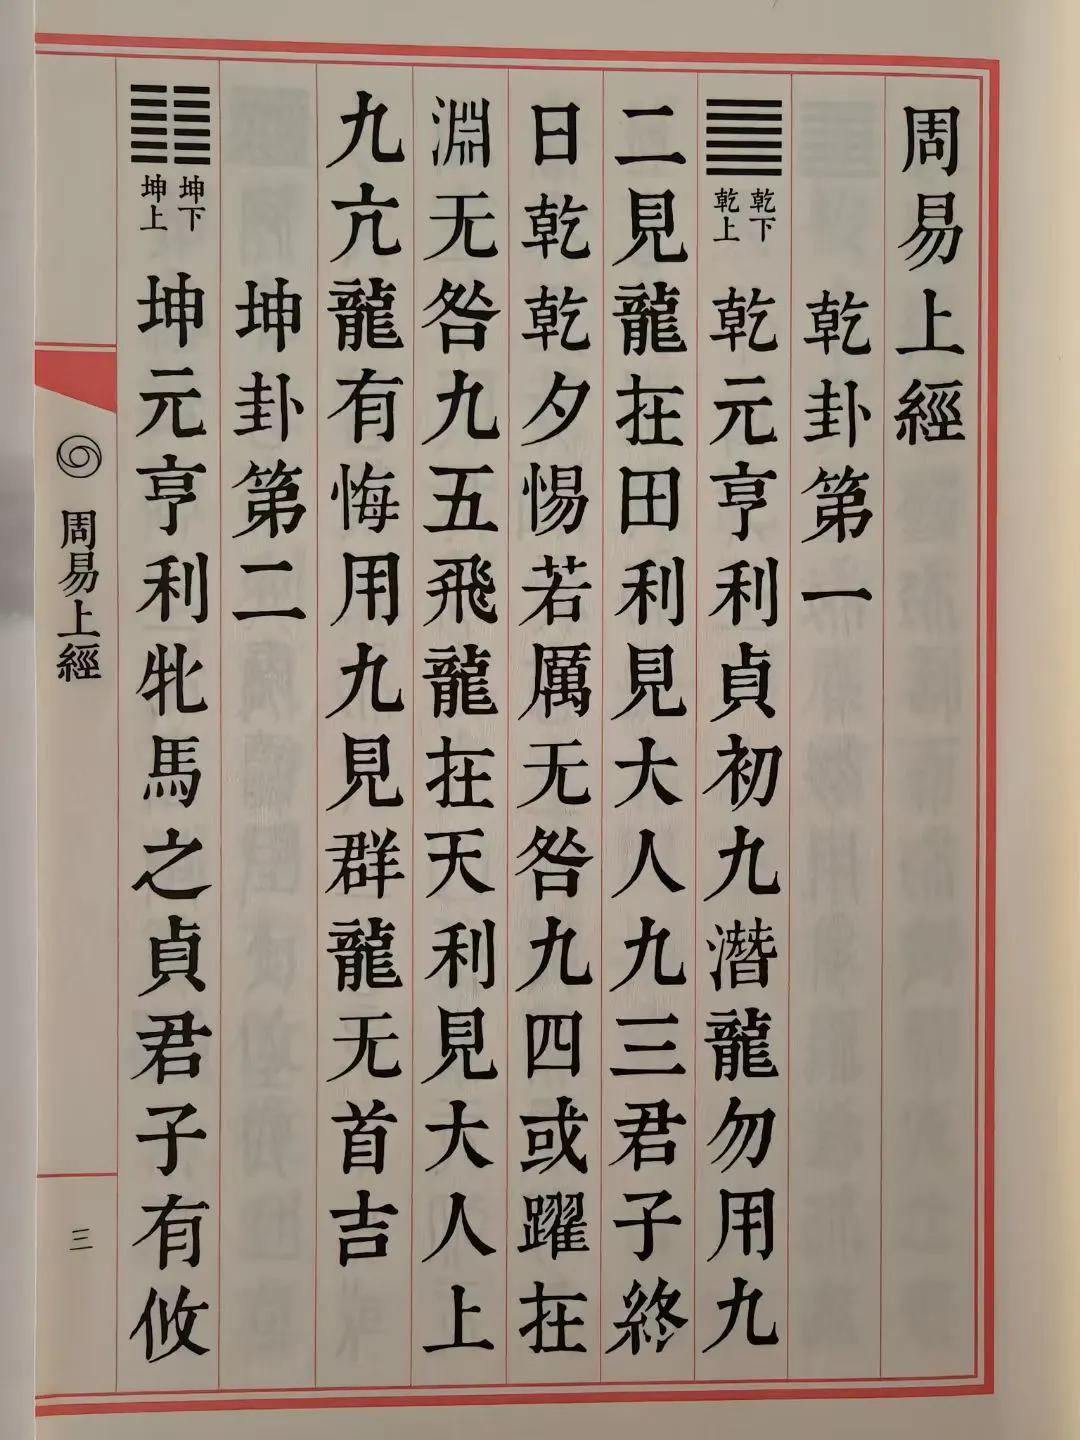 周易上經
乾卦第一
乾下
乾上
乾元亨利貞初九潛龍勿用九
二見龍在田利見大人九三君子終
日乾乾夕惕若厲无咎九四或躍在
淵无咎九五飛龍在天利見大人上
九亢龍有悔用九見群龍无首吉
坤卦第二
坤下
坤上
坤元亨利牝馬之貞君子有攸
周易上經
三